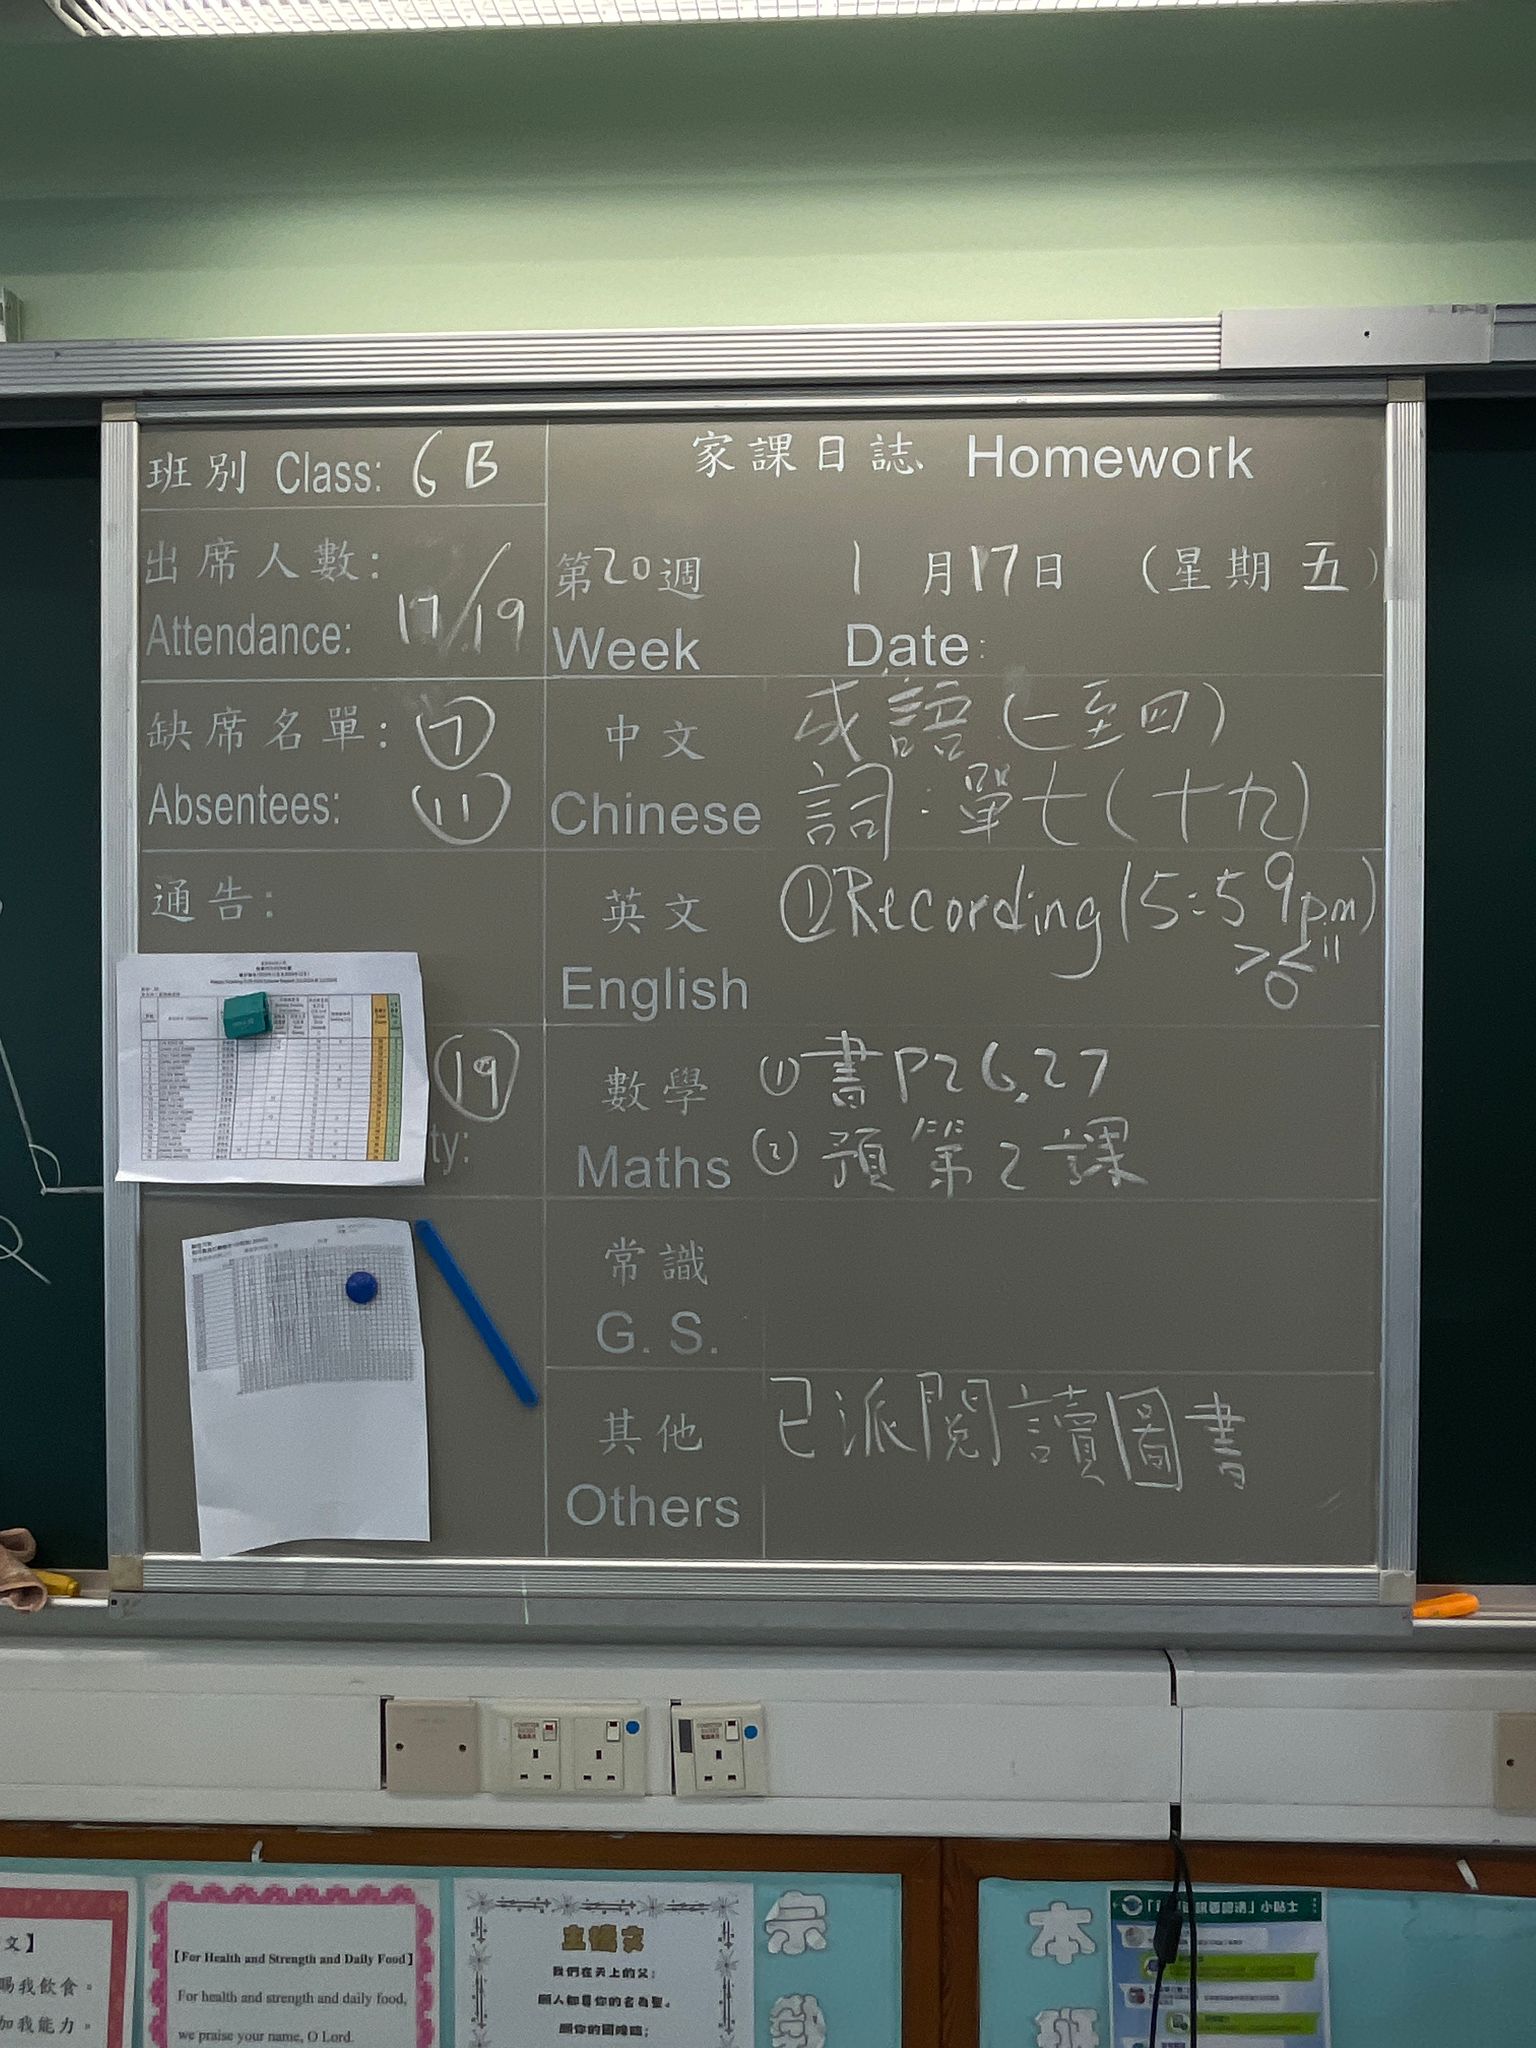 班別 Class: 6B
出席人數:
Attendance: 17/19
缺席名單: ⑦
Absentees: ⑪
通告:
⑲
ty:
家課日誌 Homework
第20週 1月17日 (星期五)
Week Date:
中文 成語(一至四)
Chinese 詞:單七(十九)
英文 ①Recording (5:59pm)
English
數學 ①書P26,27
Maths ②預第2課
常識
G. S.
其他 已派閱讀圖書
Others
文】
賜我飲食。
加我能力。
【For Health and Strength and Daily Food】
For health and strength and daily food,
we praise your name, O Lord.
主禱文
我們在天上的父:
願人都尊你的名為聖。
願你的國降臨;
宗
本
小貼士